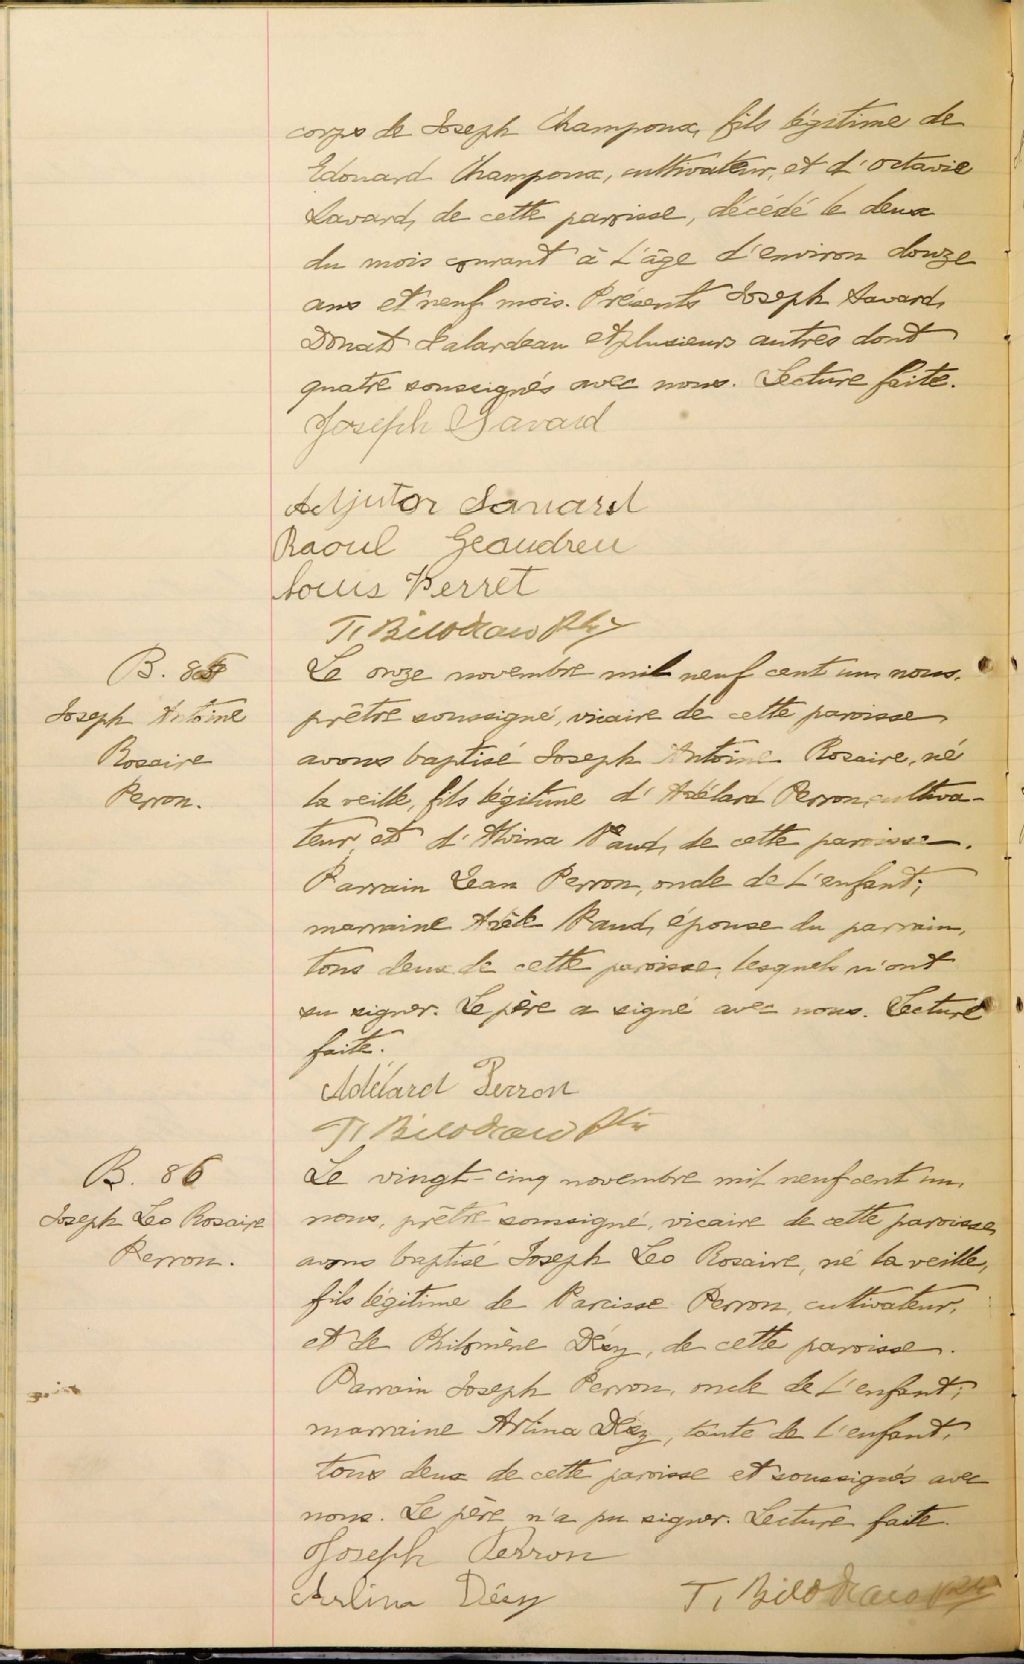 corps de Joseph Champoux, fils légitime de
Edouard Champoux, cultivateur, et d'Octavie
Savard, de cette paroisse, décédé le deux
du mois courant à l'âge d'environ douze
ans et neuf mois. Présents Joseph Savard,
Donat Falardeau et plusieurs autres dont
quatre soussignés avec nous. Lecture faite.
Joseph Savard
Adjutor Savard
Raoul Geaudreu
Louis Verret
T. Bilodeau Ptre
B. 85
Joseph Antoine
Rosaire
Perron.
Le onze novembre mil neuf cent un, nous,
prêtre soussigné, vicaire de cette paroisse
avons baptisé Joseph Antoine Rosaire, né
la veille, fils légitime d'Adélard Perron, cultiva-
teur, et d'Alvina, de cette paroisse.
Parrain Jean Perron, oncle de l'enfant;
marraine épouse du parrain,
tous deux de cette paroisse, lesquels n'ont
su signer. Le père a signé avec nous. Lecture
faite.
Adélard Perron
T. Bilodeau Ptre
B. 86
Joseph Leo Rosaire
Perron.
Le vingt-cinq novembre mil neuf cent un,
nous, prêtre soussigné, vicaire de cette paroisse
avons baptisé Joseph Leo Rosaire, né la veille,
fils légitime de Narcisse Perron, cultivateur,
et de Philomène Déry, de cette paroisse.
Parrain Joseph Perron, oncle de l'enfant;
marraine Arlina Déry, tante de l'enfant,
tous deux de cette paroisse et soussignés avec
nous. Le père n'a pu signer. Lecture faite.
Joseph Perron
Arlina Déry T. Bilodeau Ptre